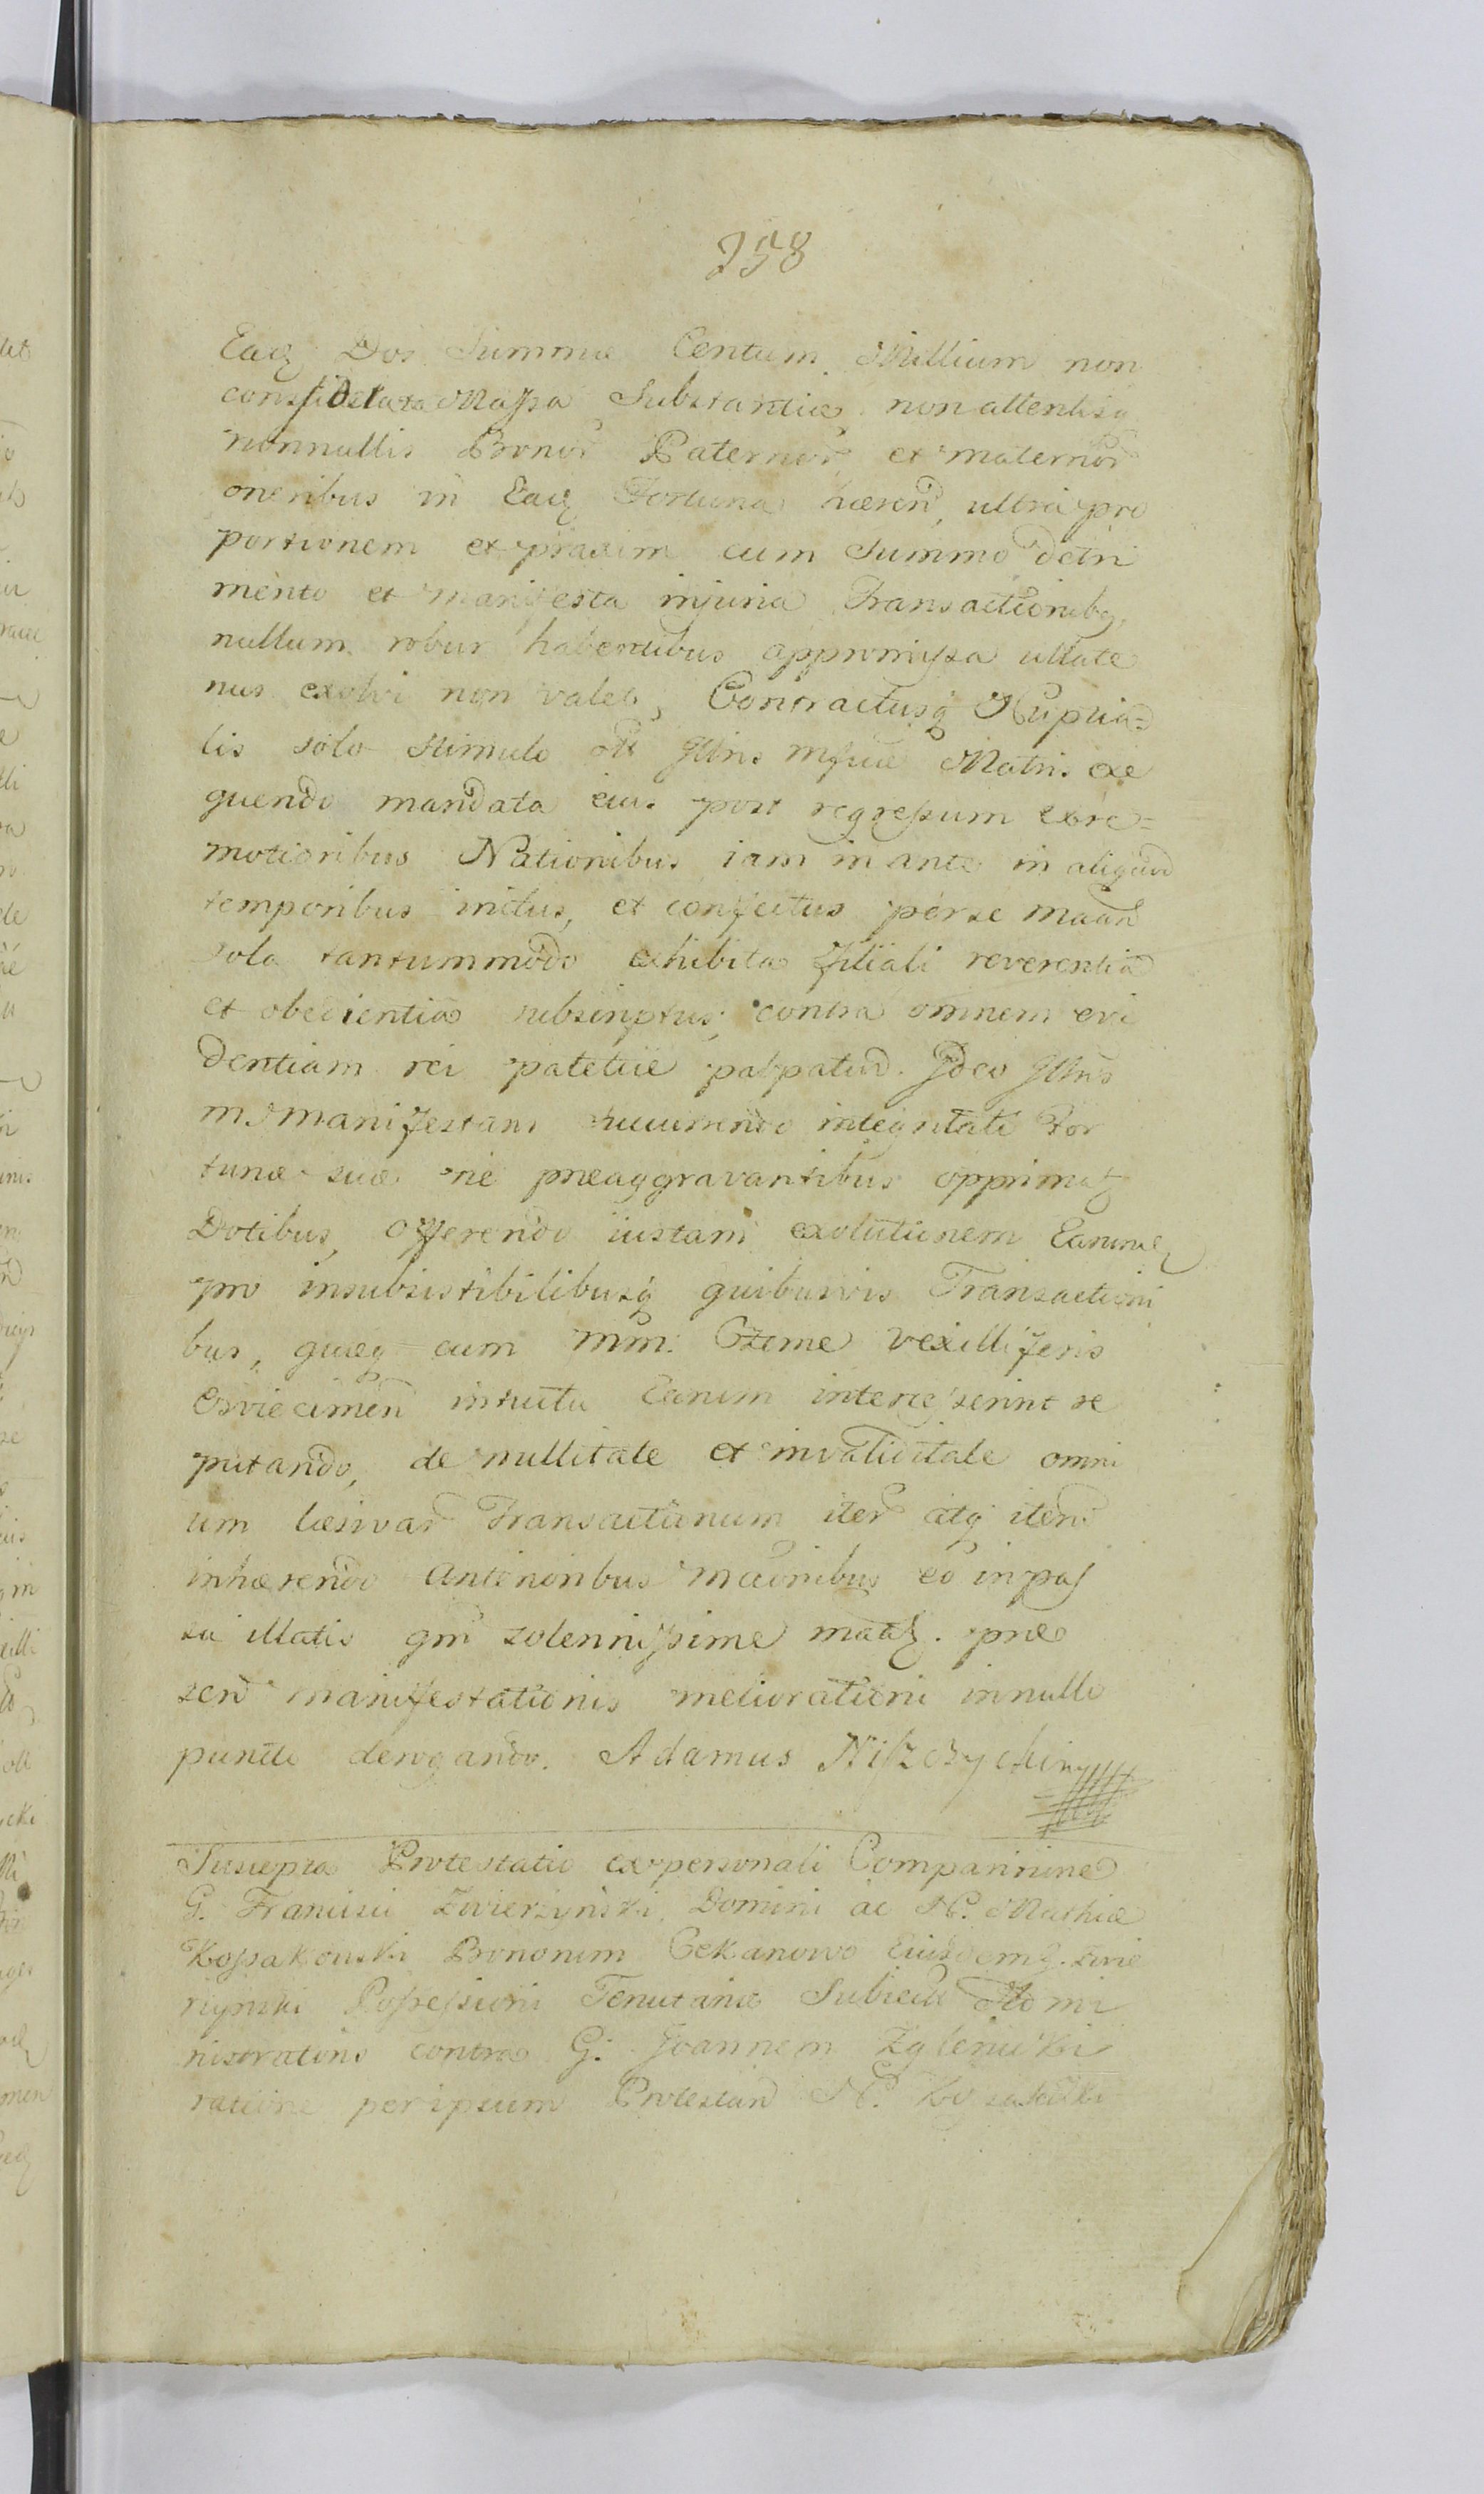 258
Eaq Dos Summæ Centum Millium non
considerata Massa Substantiæ, non attentisq
nonnullis Bonor Paternor et maternor
oneribus in Eaq Fortuna hæren, ultra pro
portionem et praxim cum Summo detri
mento et manifesta injuria Transactionibq,
nullum robur habentibus appromissa ullate
nus exolvi non valet, Contractusq Nuptia=
lis solo stimulo Illris Mfcæ Matris exe
quendo mandata eius post regressum ex re=
motioribus Nationibus iam in ante in aliquid
temporibus initus, et confectus per se maan
sola tantummodo exhibita filiali reverentia
et obedientia subscriptus, contra omnem evi
dentiam rei patetúe palpatur. Ideo Illris
M. Manifestans succurrendo integritati For
tunæ suæ ne præaggravantibus opprimatq
Dotibus, offerendo iustam exolutionem Earumq
pro insubsistibilibusq quibusvis Transactioni
bus, quæq cum Mm: Ozeme Vexilliferis
Osviecimen intuitu Earum interceserint re
putando, de nullitate et invaliditate omni
um læsivar Transactionum iter atq iter
inhærendo anterioribus mãonibus eo in pas
su illatis qm solennissime maatq. præ
sen manifestationis meliorationi in nullo
puncto derogando. Adamus Niszczycki mp
Suscepta Protestatio ex personali Comparitione
G. Francisci Zwierzynski, Domini ac N. Mathiæ
Kossakouski Bonorum Cekanowo Eiusdemq. Zwie
rzynski Possessioni Tenutariæ Subiect Admi
nistratoris contra G. Joannem Zglenicki
ratione per ipsum Protestan N.